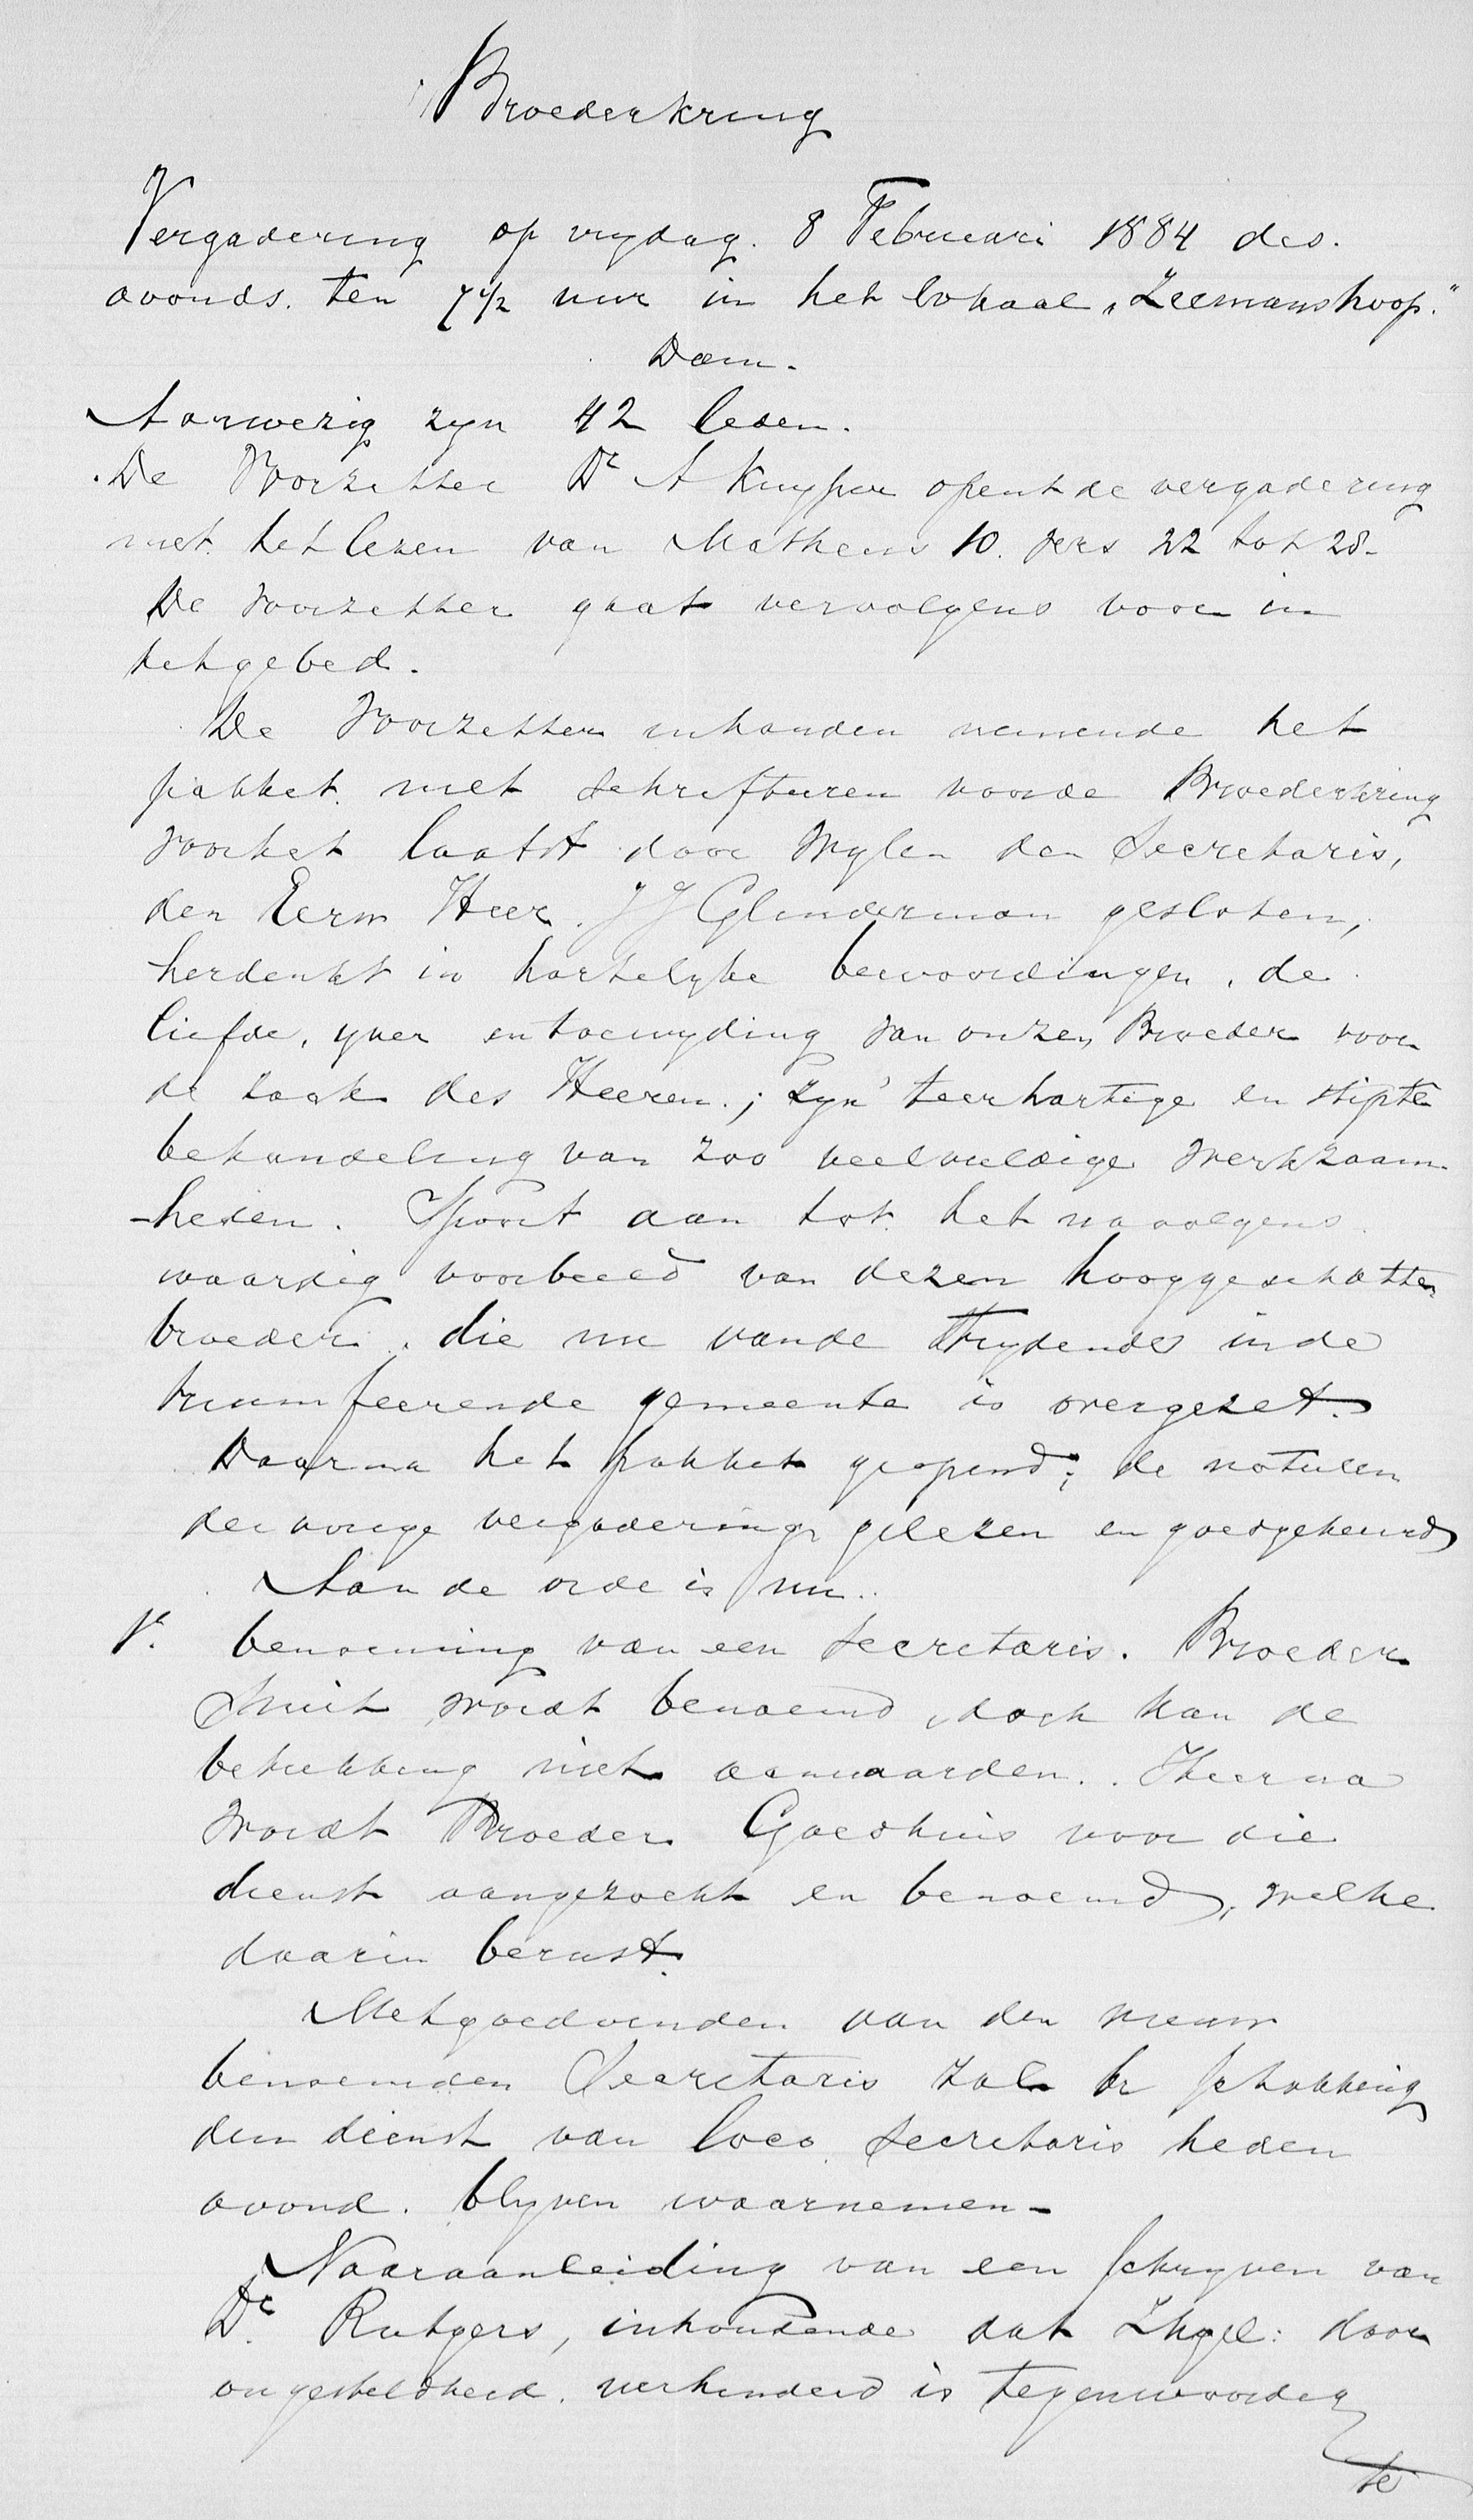 Broederkring
Vergadering op vrydag. 8 Februari 1884 des.
avonds. ten 7 1/2 uur in het lokaal „Zeemanshoop."
Dam.
Aanwezig zyn 42 leden.
De Voorzitter Dr A Kuyper opent de vergadering
met het lezen van Matheus 10. vers 22 tot 28.
De voorzitter gaat vervolgens voor in
het gebed.
De Voorzitter in handen nemende het
pakket met schrifturen voor de Broederkring
voor het laatst door Wylen den Secretaris,
den Eerw Heer. J J Glinderman gesloten,
herdenkt in hartelyke bewoordingen, de
liefde, yver en toewyding van onzen Broeder voor
de zaak des Heeren.; zyn teerhartige en stipte
behandeling van zoo veelvuldige werkzaam-
-heden. Spoort aan tot het navolgens
waardig voorbeeld van dezen hooggeschatten
broeder. die nu van de strydende in de
triumfeerende gemeente is overgezet.
Daarna het pakket geopend; de notulen
der vorige vergadering gelezen en goedgekeurd
Aan de orde is nu.
1e. benoeming van een secretaris. Broeder
Smit wordt benoemd, doch kan de
betrekking niet aanvaarden. Hierna
wordt Broeder Goedhuis voor die
dienst aangezocht en benoemd, welke
daarin berust.
Met goedvinden van den nieuw
benoemden Secretaris zal br Schokking
den dienst van loco secretaris heden
avond. blyven waarnemen-
Naar aanleiding van een schryven van
Dr. Rutgers, inhoudende dat ZHgel: door
ongesteldheid. verhinderd is tegenwoordig
te